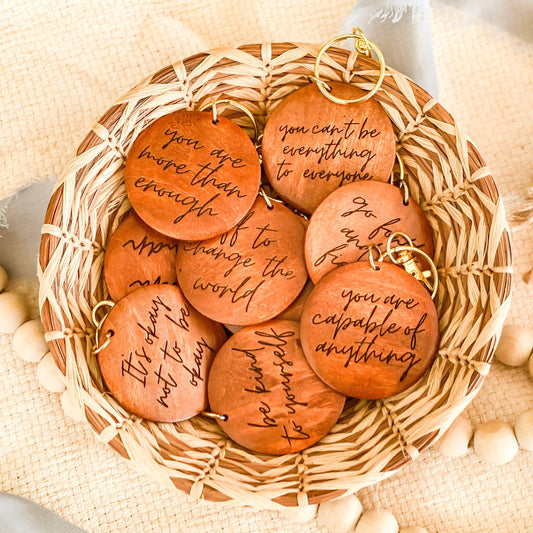 you are
more than
enough
you can't be
everything
to everyone
go
an
f
off to
change the
world
you are
capable of
anything
It's okay
not to be
okay
be kind
to yourself